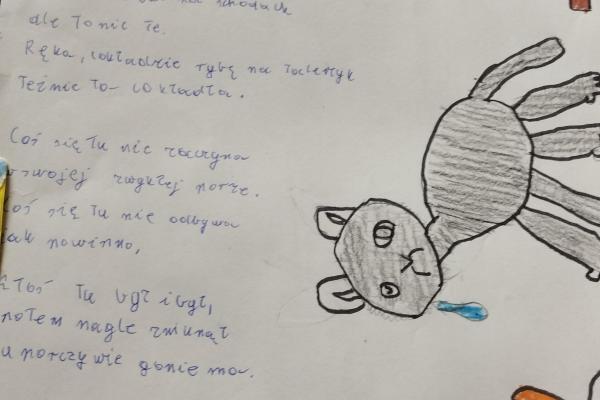 na schodach
ale to nie te.
Ręka, co kładzie rybę na talerzyk
Też nie ta- co kładła.
Coś się tu nie zaczyna
w swojej zwykłej porze.
Coś się tu nie odbywa
jak powinno,
Ktoś tu był i był,
potem nagle zniknął
u porczywie gonie ma.